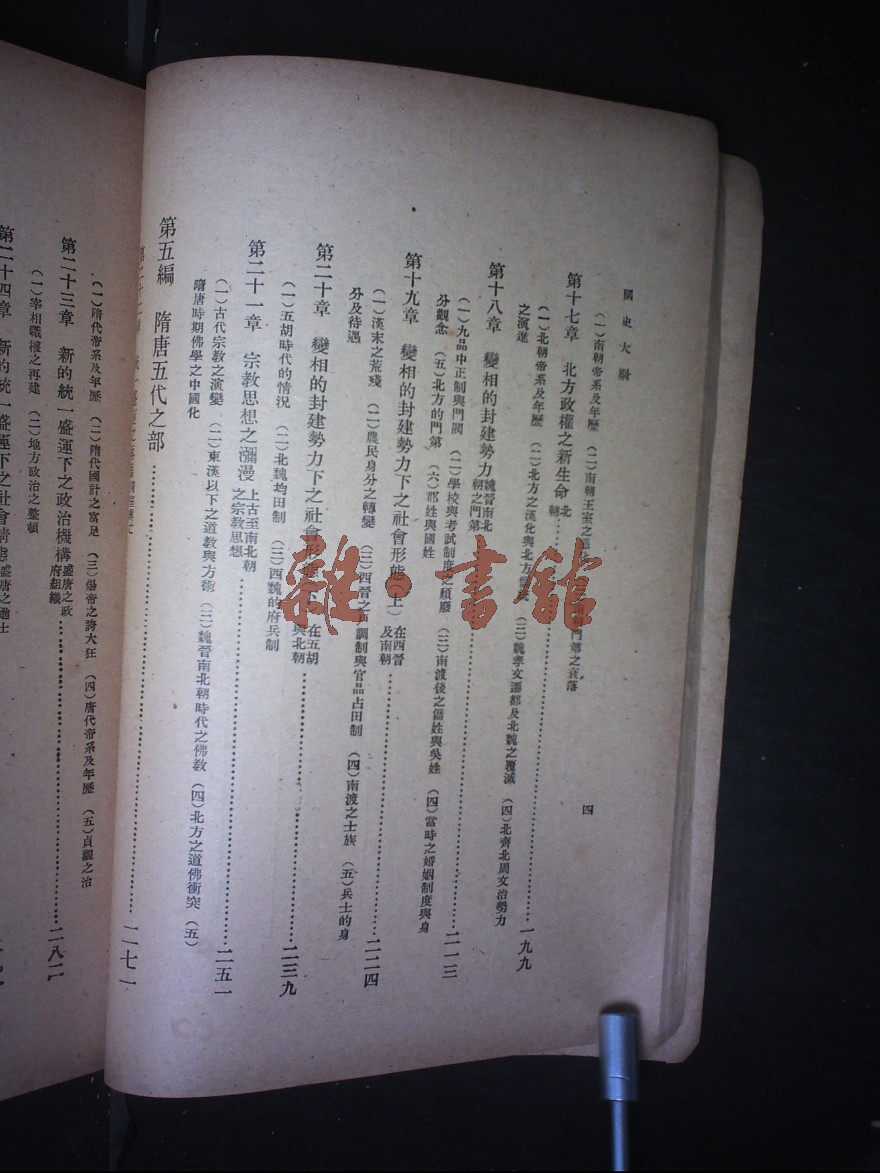 國史大綱
四
（一）南朝帝系及年歷　（二）南朝王室之　門第之衰落
第十七章　北方政權之新生命 北朝 一九九
（一）北朝帝系及年歷　（二）北方之漢化與北方　（三）魏孝文遷都及北魏之覆滅　（四）北齊北周文治勢力
之演進
第十八章　變相的封建勢力 魏晉南北朝之門第 二一三
（一）九品中正制與門閥　（二）學校與考試制度之頹廢　（三）南渡後之僑姓與吳姓　（四）當時之婚姻制度與身
分觀念　（五）北方的門第　（六）郡姓與國姓
第十九章　變相的封建勢力下之社會形態（上） 在西晉及南朝 二二四
（一）漢末之荒殘　（二）農民身分之轉變　（三）西晉之戶調制與官品占田制　（四）南渡之士族　（五）兵士的身
分及待遇
第二十章　變相的封建勢力下之社會形態 下 在五胡與北朝 二三九
（一）五胡時代的情況　（二）北魏均田制　（三）西魏的府兵制
第二十一章　宗教思想之瀰漫 上古至南北朝之宗教思想 二五一
（一）古代宗教之演變　（二）東漢以下之道教與方術　（三）魏晉南北朝時代之佛教　（四）北方之道佛衝突　（五）
隋唐時期佛學之中國化
第五編　隋唐五代之部
二七一
（一）隋代帝系及年歷　（二）隋代國計之富足　（三）煬帝之誇大狂　（四）唐代帝系及年歷　（五）貞觀之治
第二十三章　新的統一盛運下之政治機構 盛唐之政府組織 二八二
（一）宰相職權之再建　（二）地方政治之整頓
第二十四章　新的統一盛運下之社會情態 盛唐之進士
雜·書館